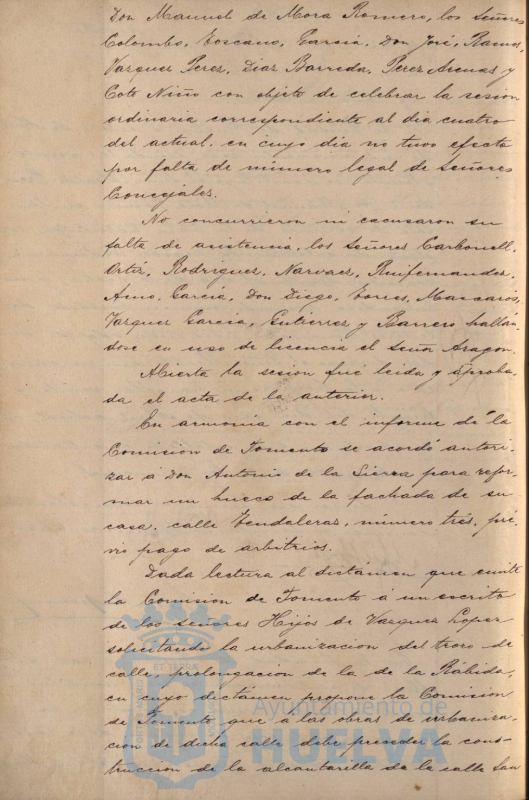 Don Manuel de Mora Romero, los Señores
Colombo, Toscano, García, Don José, Ramos,
Vazquez Perez, Diaz Barreda, Perez Arenas y
Coto Niño con objeto de celebrar la sesion
ordinaria correspondiente al dia cuatro
del actual, en cuyo dia no tuvo efecto
por falta de número legal de Señores
Concejales.
No concurrieron ni escusaron su
falta de asistencia, los Señores Carbonell,
Ortiz, Rodriguez, Narvaez, Ruifernandez,
García, Don Diego, Torres, Mascarós,
Vazquez García, Gutierrez y Barrero hallan
dose en uso de licencia el Señor Aragon.
Abierta la sesion fué leida y aproba-
da el acta de la anterior.
En armonia con el informe de la
Comision de Fomento se acordó autori-
zar á Don Antonio de la Sierra para refor-
mar un hueco de la fachada de su
casa, calle Tendaleras, número tres, pré-
vio pago de arbitrios.
Dada lectura al dictámen que emite
la Comision de Fomento á un escrito
de los señores Hijos de Vazquez Lopez
solicitando la urbanizacion del trozo de
calle, prolongacion de la de la Rábida,
en cuyo dictámen propone la Comision
de Fomento que á las obras de urbaniza-
cion de dicha calle debe preceder la cons-
truccion de la alcantarilla de la calle San
Ayuntamiento de
HUELVA